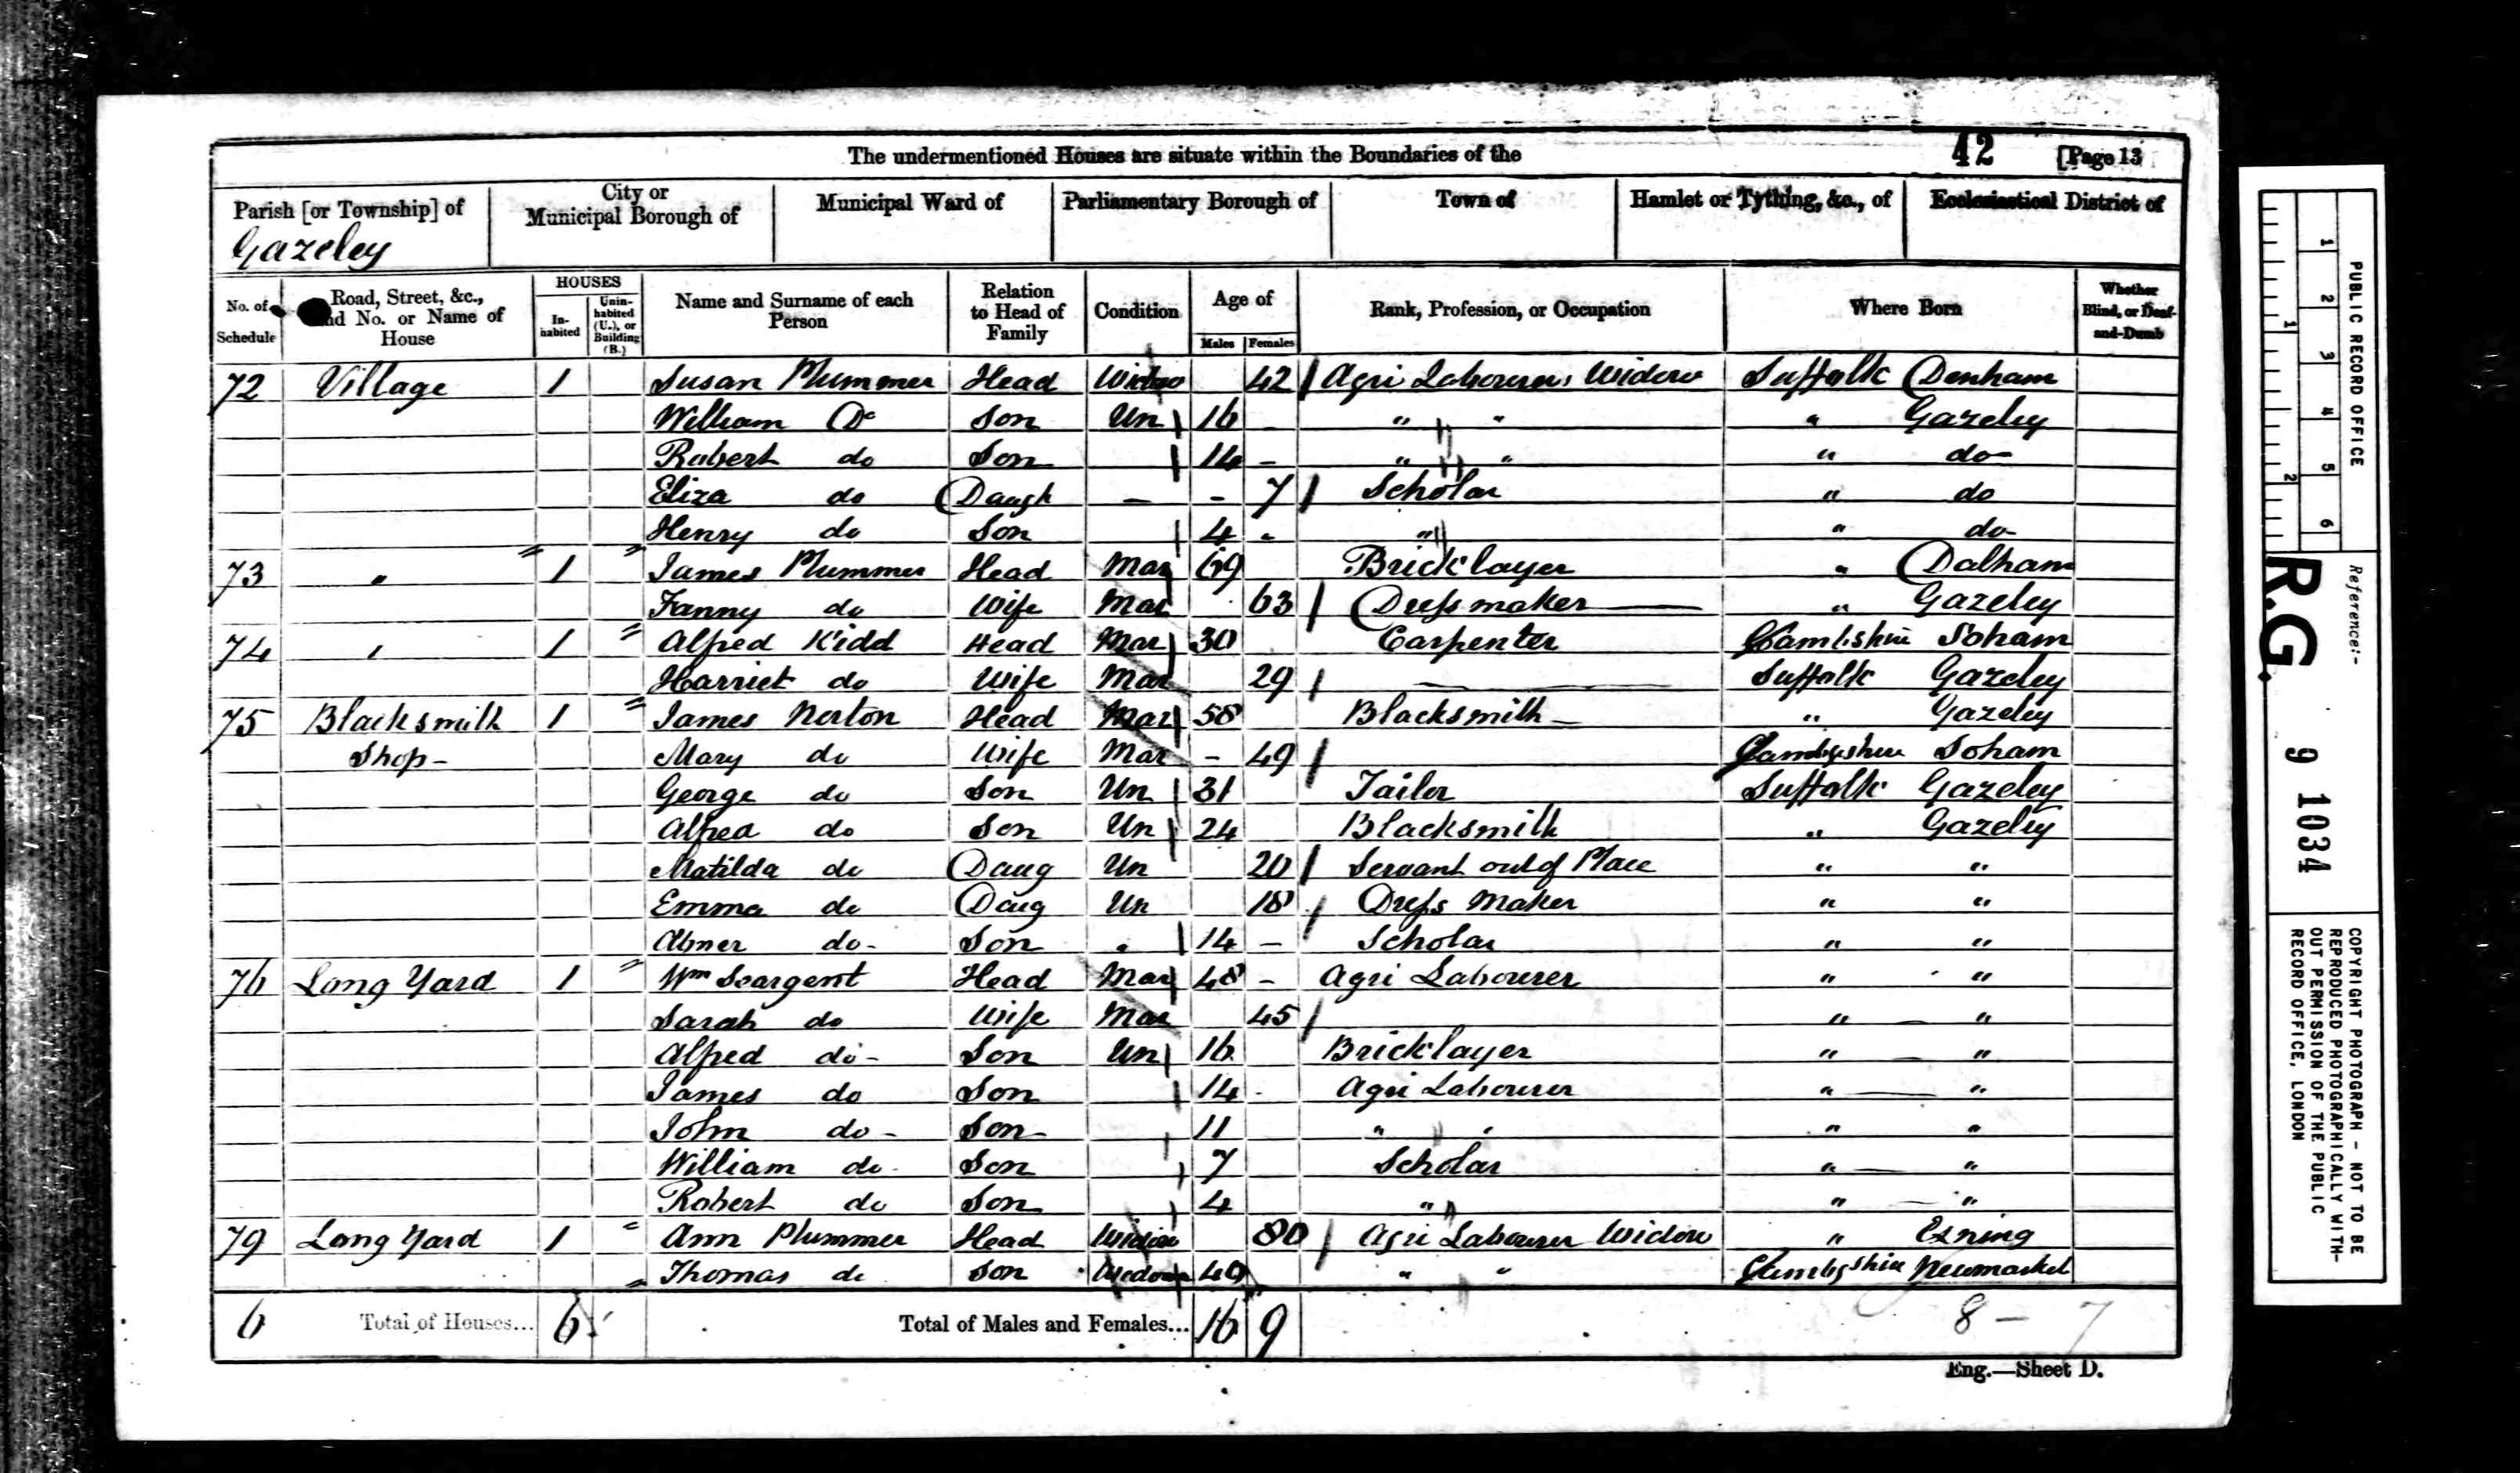 The undermentioned Houses are situate within the Boundaries of the 42 [Page 13
Parish [or Township] of City or Municipal Borough of Municipal Ward of Parliamentary Borough of Town of Hamlet or Tything, &c., of Ecclesiastical District of
Gazeley
No. of Schedule Road, Street, &c., and No. or Name of House HOUSES In-habited Unin-habited (U.), or Building (B.) Name and Surname of each Person Relation to Head of Family Condition Age of Males Females Rank, Profession, or Occupation Where Born Whether Blind, or Deaf-and-Dumb
72 Village 1 Susan Plummer Head Widow 42 Agri Labourers Widow Suffolk Denham
William Do Son Un 16 " " " Gazeley
Robert do Son 14 - " " " do
Eliza do Daugh - - 7 Scholar " do
Henry do Son 4 - " " do
73 " 1 James Plummer Head Mar 69 Bricklayer " Dalham
Fanny do Wife Mar 63 Dress maker " Gazeley
74 " 1 Alfred Kidd Head Mar 30 Carpenter Cambshire Soham
Harriet do Wife Mar 29 Suffolk Gazeley
75 Blacksmith 1 James Norton Head Mar 58 Blacksmith " Gazeley
Shop - Mary do Wife Mar - 49 Cambgshire Soham
George do Son Un 31 Tailor Suffolk Gazeley
Alfred do Son Un 24 Blacksmith " Gazeley
Matilda do Daug Un 20 Servant out of Place " "
Emma do Daug Un 18 Dress Maker " "
Abner do - Son " 14 - Scholar " "
76 Long Yard 1 Wm Seargent Head Mar 48 - Agri Labourer " "
Sarah do Wife Mar 45 " "
Alfred do - Son Un 16 Bricklayer " "
James do Son 14 - Agri Labourer " "
John do - Son 11 " " " "
William do - Son 7 Scholar " "
Robert do Son 4 " " "
79 Long Yard 1 Ann Plummer Head Widow 80 Agri Labourer Widow " Exning
Thomas do Son 40 " " Cambgshire Newmarket
6 Total of Houses... 6 Total of Males and Females... 16 9 8 - 7
Eng.—Sheet D.
PUBLIC RECORD OFFICE
1 2 3 4 5 6
1 2
Reference:-
R.G. 9 1034
COPYRIGHT PHOTOGRAPH - NOT TO BE
REPRODUCED PHOTOGRAPHICALLY WITH-
OUT PERMISSION OF THE PUBLIC
RECORD OFFICE, LONDON